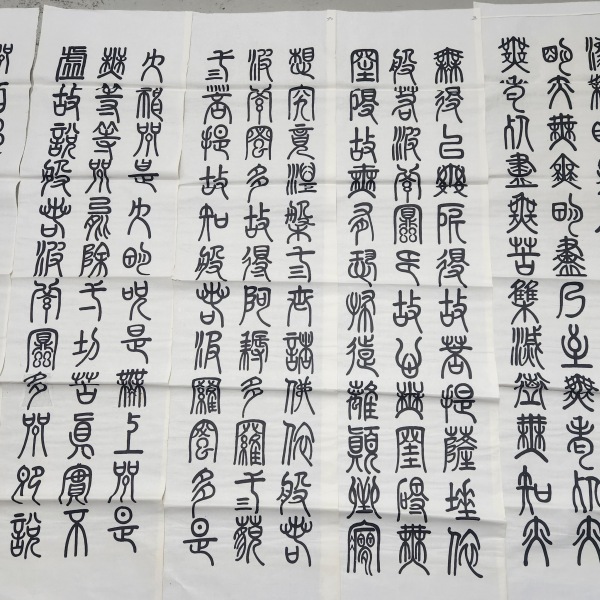 明亦無無明盡乃至無老死亦
無老死盡無苦集滅道無知亦
無得以無所得故菩提薩埵依
般若波羅蜜多故心無罣礙無
罣礙故無有恐怖遠離顛倒夢
想究竟涅槃三世諸佛依般若
波羅蜜多故得阿耨多羅三藐
三菩提故知般若波羅蜜多是
大神咒是大明咒是無上咒是
無等等咒能除一切苦真實不
虛故說般若波羅蜜多咒即說